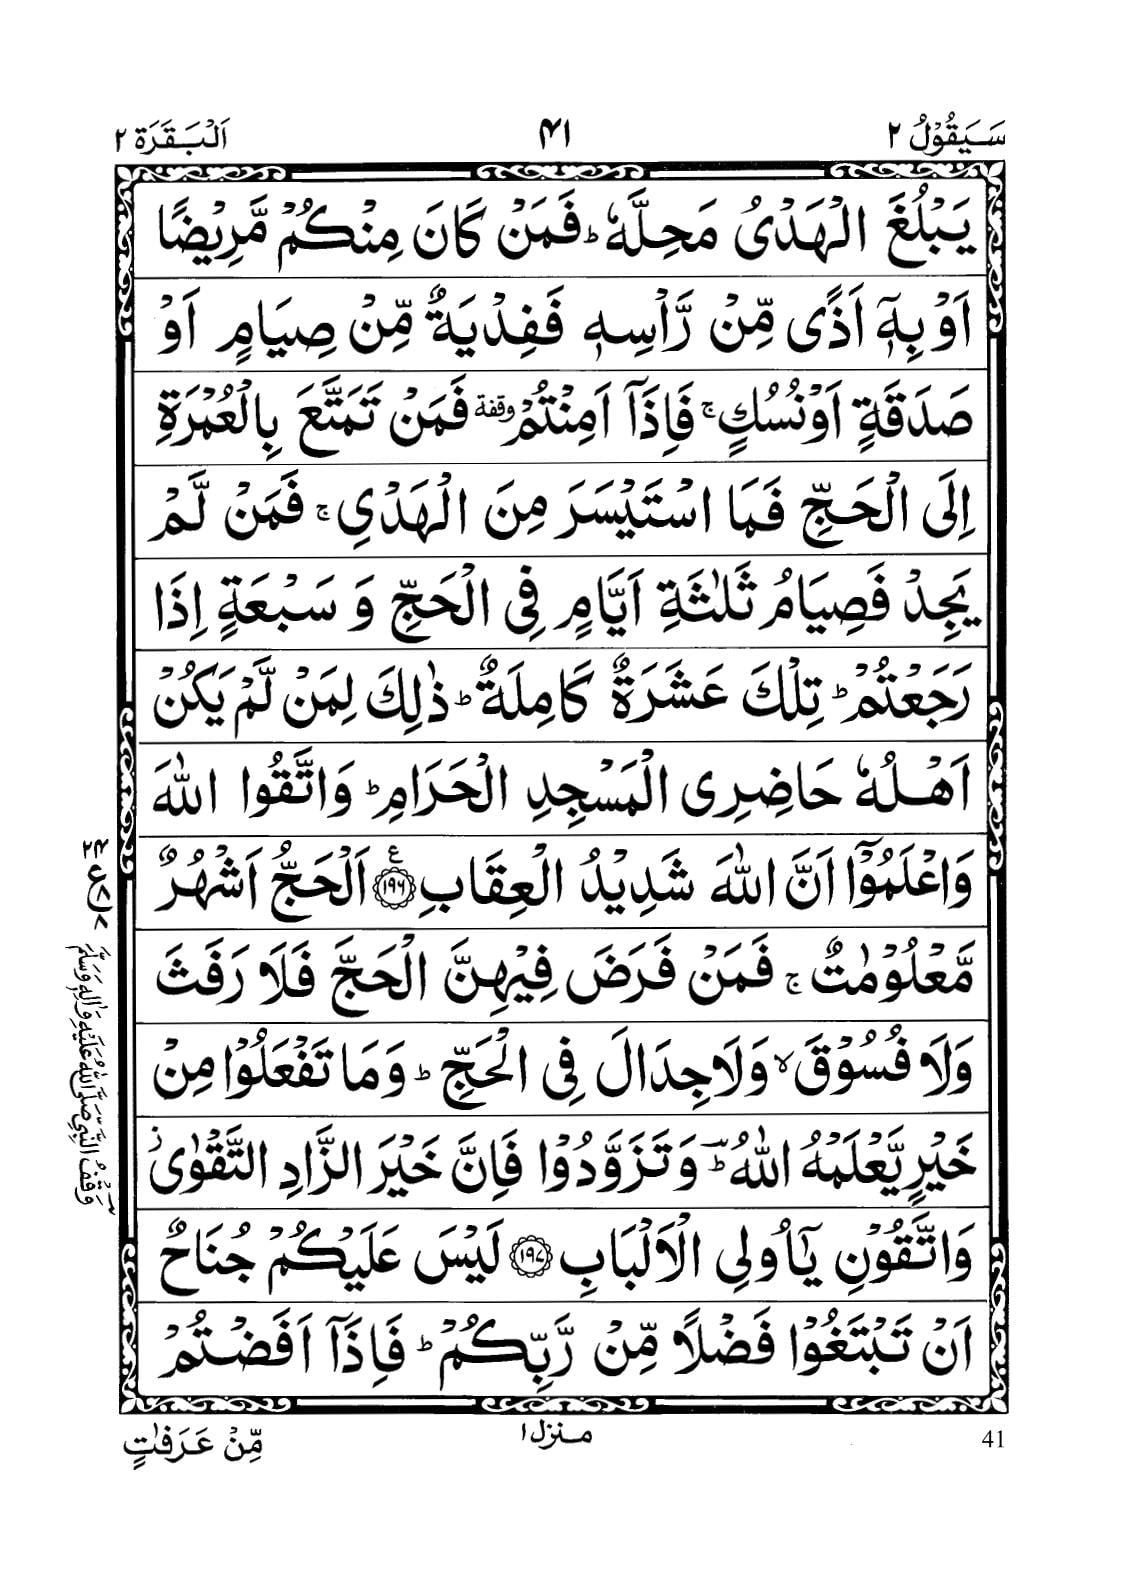 سَيَقُوۡلُ ٢
۴۱
اَلۡبَقَرَة ٢
يَبۡلُغَ الۡهَدۡىُ مَحِلَّهٗ ؕ فَمَنۡ كَانَ مِنۡكُمۡ مَّرِيۡضًا
اَوۡ بِهٖۤ اَذًى مِّنۡ رَّاۡسِهٖ فَفِدۡيَةٌ مِّنۡ صِيَامٍ اَوۡ
صَدَقَةٍ اَوۡ نُسُكٍ ۚ فَاِذَاۤ اَمِنۡتُمۡ وقفة فَمَنۡ تَمَتَّعَ بِالۡعُمۡرَةِ
اِلَى الۡحَجِّ فَمَا اسۡتَيۡسَرَ مِنَ الۡهَدۡىِ ۚ فَمَنۡ لَّمۡ
يَجِدۡ فَصِيَامُ ثَلٰثَةِ اَيَّامٍ فِى الۡحَجِّ وَ سَبۡعَةٍ اِذَا
رَجَعۡتُمۡ ؕ تِلۡكَ عَشَرَةٌ كَامِلَةٌ ؕ ذٰلِكَ لِمَنۡ لَّمۡ يَكُنۡ
اَهۡلُهٗ حَاضِرِى الۡمَسۡجِدِ الۡحَرَامِ ؕ وَاتَّقُوا اللّٰهَ
وَاعۡلَمُوۡۤا اَنَّ اللّٰهَ شَدِيۡدُ الۡعِقَابِ ﴿۱۹۶﴾ ع اَلۡحَجُّ اَشۡهُرٌ
مَّعۡلُوۡمٰتٌ ۚ فَمَنۡ فَرَضَ فِيۡهِنَّ الۡحَجَّ فَلَا رَفَثَ
وَلَا فُسُوۡقَ ۙ وَلَا جِدَالَ فِى الۡحَجِّ ؕ وَمَا تَفۡعَلُوۡا مِنۡ
خَيۡرٍ يَّعۡلَمۡهُ اللّٰهُ ؕ وَتَزَوَّدُوۡا فَاِنَّ خَيۡرَ الزَّادِ التَّقۡوٰى ز
وَاتَّقُوۡنِ يٰۤاُولِى الۡاَلۡبَابِ ﴿۱۹۷﴾ لَيۡسَ عَلَيۡكُمۡ جُنَاحٌ
اَنۡ تَبۡتَغُوۡا فَضۡلًا مِّنۡ رَّبِّكُمۡ ؕ فَاِذَاۤ اَفَضۡتُمۡ
وَقۡفُ النَّبِيِّ صَلَّى اللّٰهُ عَلَيۡهِ وَاٰلِهٖ وَسَلَّمَ
مِّنۡ عَرَفٰتٍ
منزل ۱
41